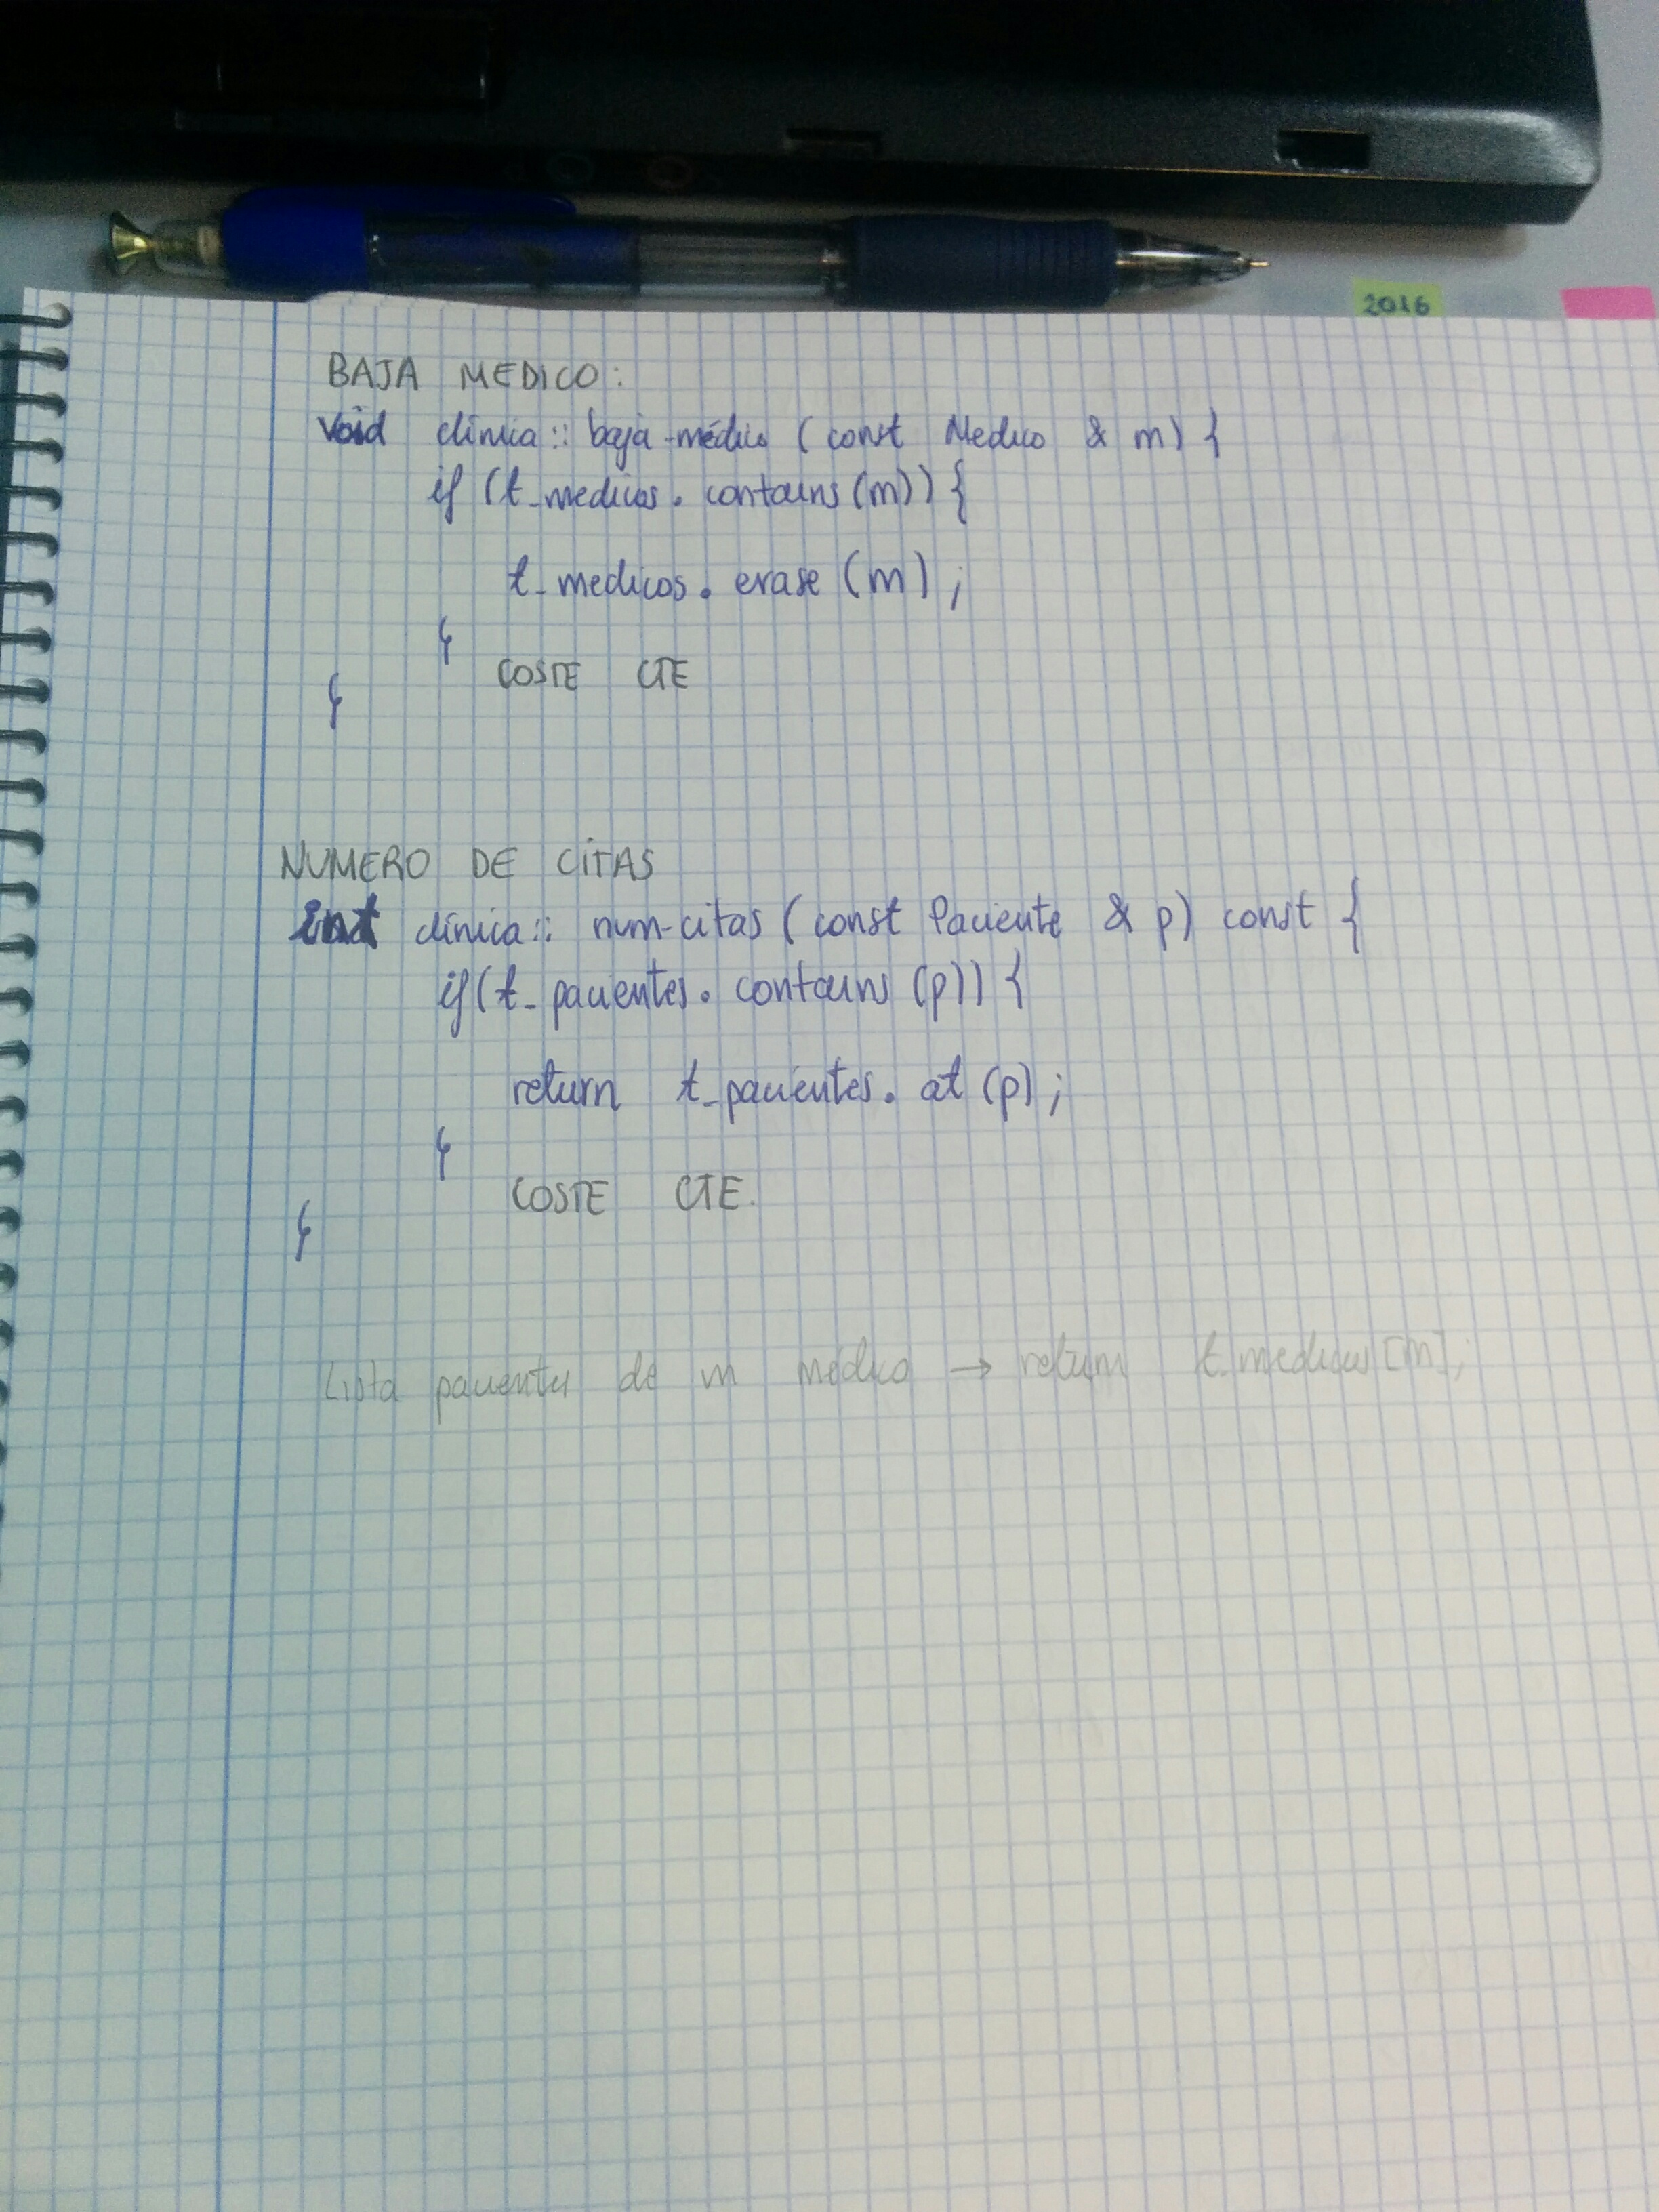 2016
BAJA MEDICO:
Void clinica:: baja-médico (const Medico & m) {
if (t_medicos.contains(m)) {
t_medicos.erase(m);
}
COSTE CTE
}
NUMERO DE CITAS
int clinica:: num-citas (const Paciente & p) const {
if (t_pacientes.contains(p)) {
return t_pacientes.at(p);
}
COSTE CTE.
}
Lista pacientes de un médico → return t_medicos[m];